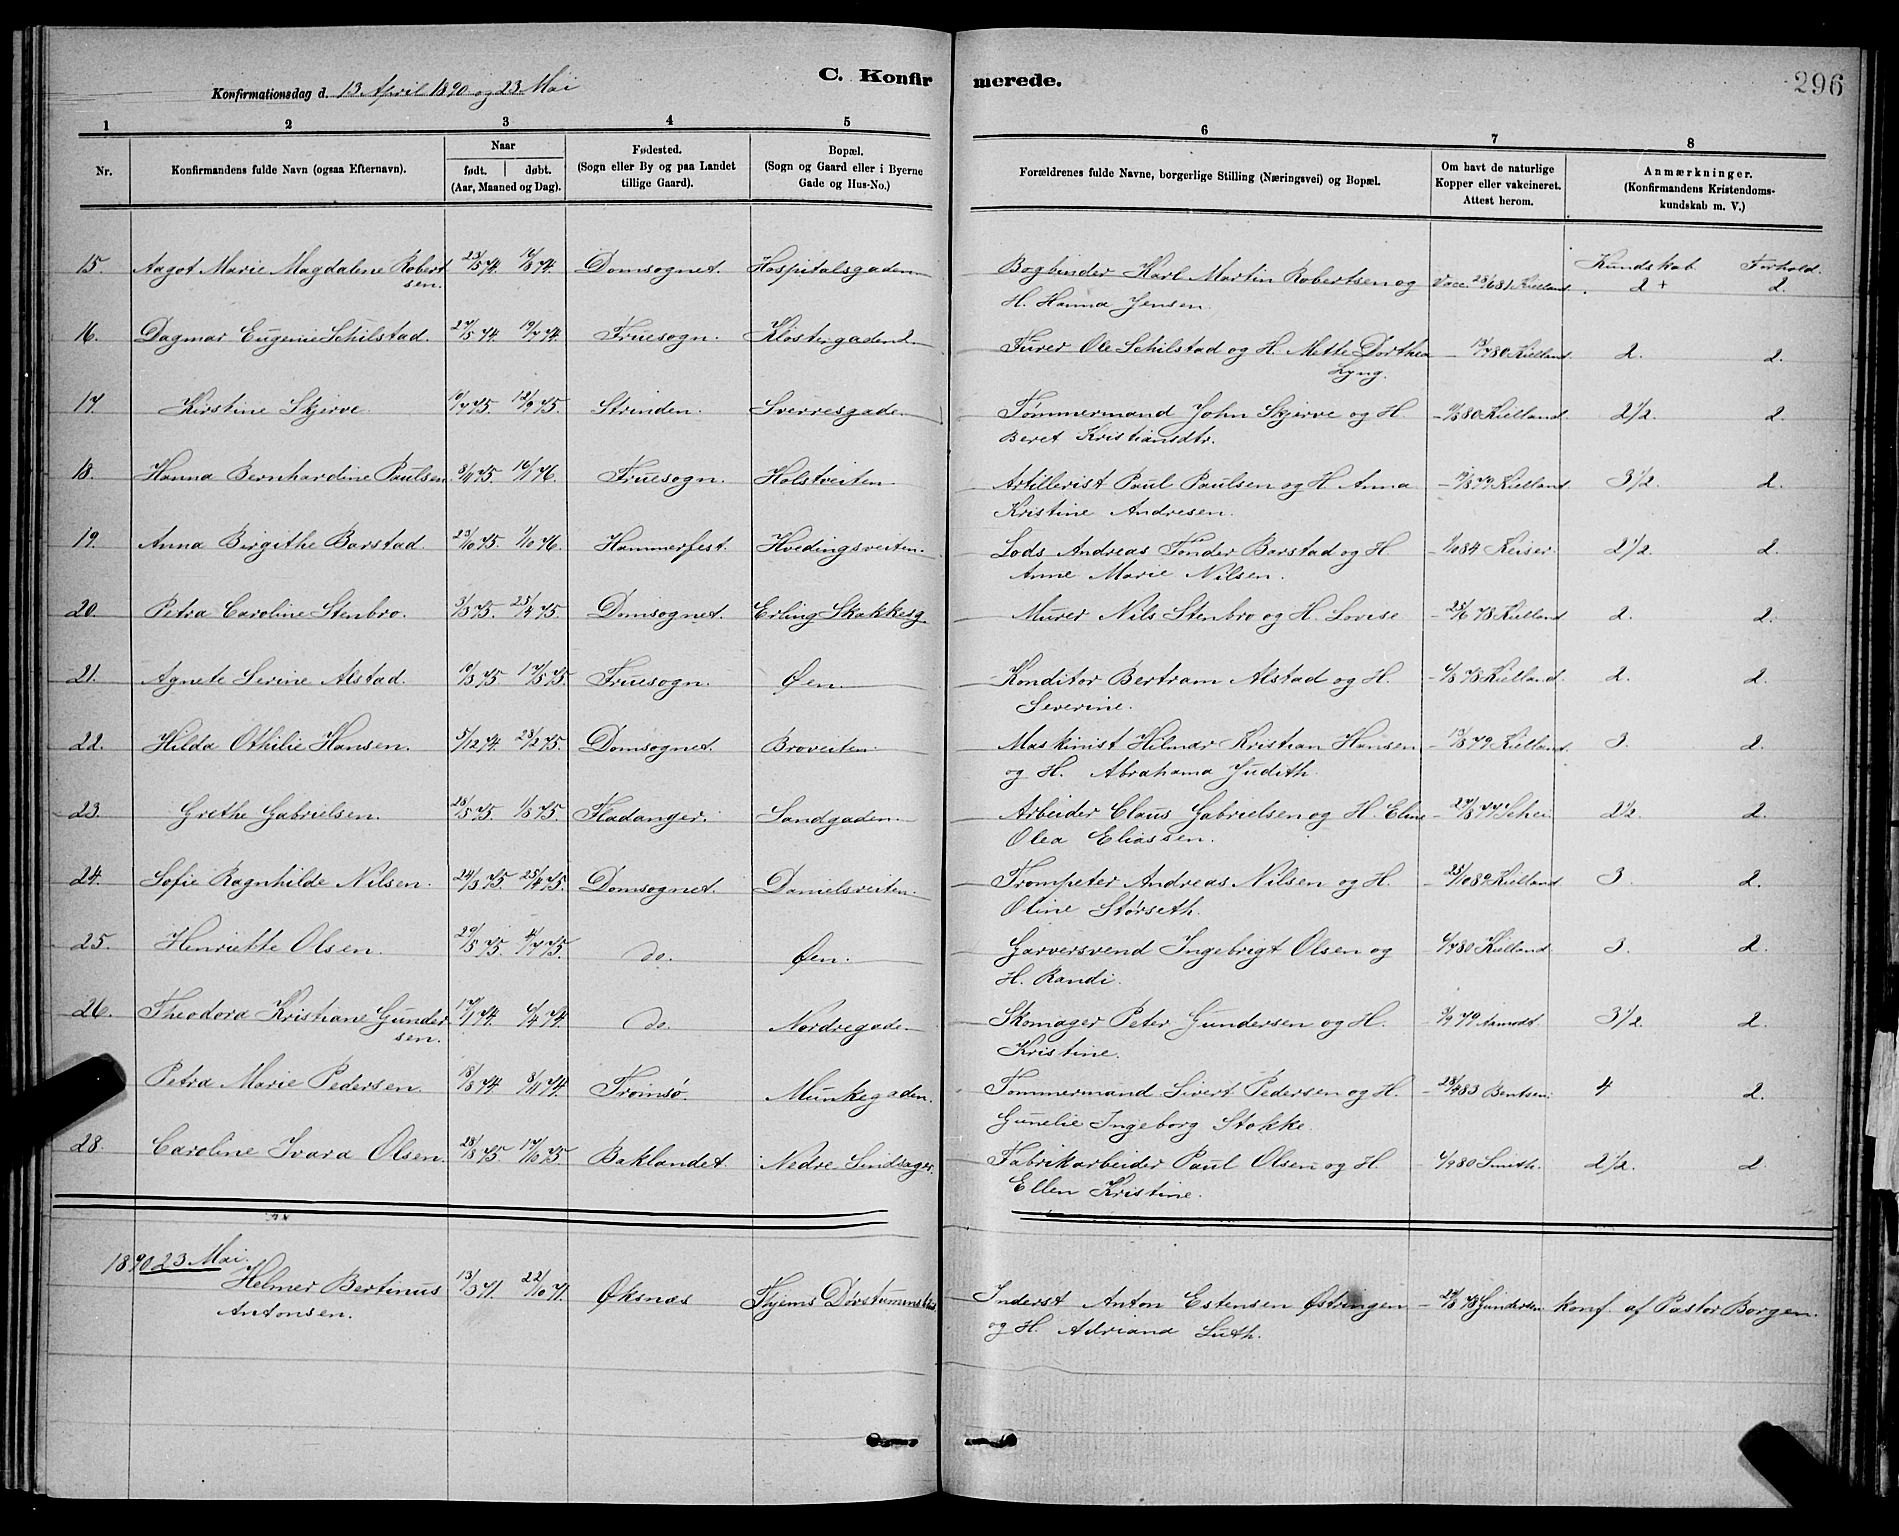 C. Konfirmerede.
296
Konfirmationsdag d. 13. April 1890 og 23. Mai
1 2 3 4 5 6 7 8
Nr.
Konfirmandens fulde Navn (ogsaa Efternavn).
Naar
født. døbt.
(Aar, Maaned og Dag).
Fødested.
(Sogn eller By og paa Landet
tillige Gaard).
Bopæl.
(Sogn og Gaard eller i Byerne
Gade og Hus-No.)
Forældrenes fulde Navne, borgerlige Stilling (Næringsvei) og Bopæl.
Om havt de naturlige
Kopper eller vakcineret.
Attest herom.
Anmærkninger.
(Konfirmandens Kristendoms-
kundskab m. V.)
Kundskab. Forhold.
15. Aagot Marie Magdalene Robert 23/5 74. 16/8 74. Domsognet. Hospitalsgaden Bogbinder Karl Martin Robertsen og Vacc. 28/6 81 Kielland. 2+ 2.
sen. H. Hanna Jensen.
16. Dagmar Eugenie Schilstad. 27/5 74. 19/7 74. Fruesogn. Klostergaden 2. Furer Ole Schilstad og H. Mette Dorthea – 13/7 80 Kielland. 2. 2.
Lyng.
17. Kirstine Skjerve. 10/7 75. 12/9 75. Strinden. Sverresgade. Tømmermand John Skjerve og H. 80 Kielland. 2 1/2. 2.
Beret Kristiansdtr.
18. Hanna Bernhardine Paulsen. 8/11 75. 16/1 76. Fruesogn. Holstveiten. Artillerist Paul Paulsen og H. Anna 79 Kielland. 3 1/2. 2.
Kristine Andresen.
19. Anna Birgithe Barstad. 23/10 75. 1/10 76. Hammerfest. Hvedingsveiten. Lods Andreas Tønder Barstad og H. 84 Keiser. 2 1/2. 2.
Anne Marie Nilsen.
20. Petra Caroline Stenbro. 3/3 75. 25/4 75. Domsognet. Erling Skakkesg. Murer Nils Stenbro og H. Lovise – 25/6 78 Kielland 2. 2.
21. Agnete Serine Alstad. 10/3 75. 17/5 75. Fruesogn. Øen. Konditor Bertram Alstad og H. – 6/8 78 Kielland. 2. 2.
Severine.
22. Hilda Othilie Hansen. 5/12 74. 28/2 75. Domsognet. Broveiten. Maskinist Helmer Kristian Hansen – 13/8 79 Kielland. 3. 2.
og H. Abrahama Judith.
23. Grethe Gabrielsen. 28/5 75. 1/8 75. Fladanger. Sandgaden. Arbeider Claus Gabrielsen og H. Eline – 27/8 77 Schei. 2 1/2. 2.
Olea Eliassen.
24. Sofie Ragnhilde Nilsen. 24/3 75 25/4 75. Domsognet. Danielsveiten. Trompeter Andreas Nilsen og H. – 25/10 89 Kielland 3. 2.
Oline Størseth.
25. Henriette Olsen. 29/5 75. 4/7 75. do. Øen. Garversvend Ingebrigt Olsen og – 6/7 80 Kielland. 3. 2.
H. Randi.
26. Theodora Kristiane Gunder 17/1 74. 6/4 74. do. Nordregade. Skomager Peter Gundersen og H. – 3/9 79 Aamodt. 3 1/2. 2.
sen. Kristine.
Petra Marie Pedersen 18/8 74. 8/11 74. Tromsø. Munkegaden. Tømmermand Sivert Pedersen og H. 83 Bentsen. 4 2.
Gunelie Ingeborg Stokke.
28. Caroline Ivara Olsen. 28/8 75. 17/10 75. Baklandet. Nedre Fabrikarbeider Paul Olsen og H. – 6/9 80 Smith. 2 1/2. 2.
Ellen Kristine.
1890 23. Mai.
Helmer Bertinus 13/3 71. 22/10 71. Øksnæs Inderst Anton Estensen Østringen 78 Gundersen konf. af Pastor Borgen.
Antonsen. og H. Adriana Luth.